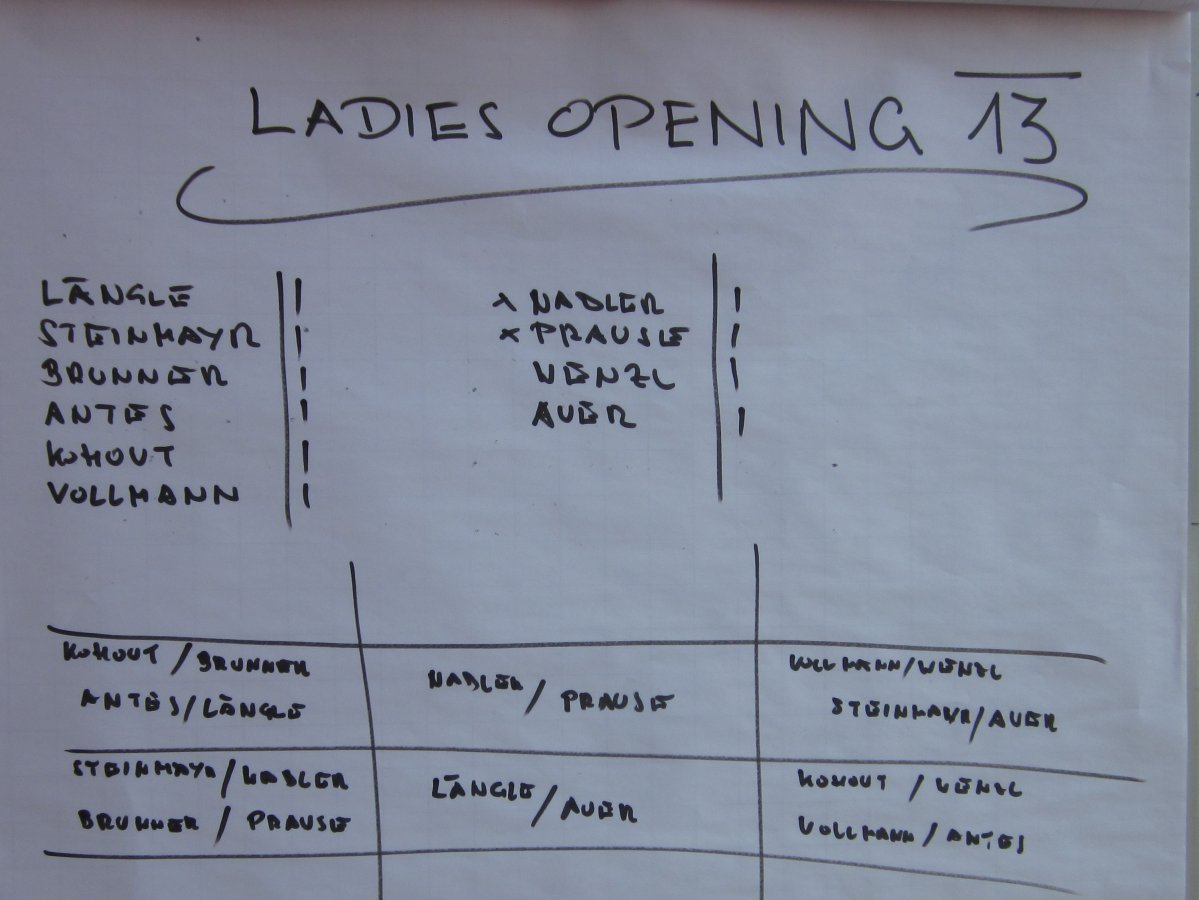 LADIES OPENING 13
LÄNGLE |
STEINMAYR |
BRUNNER |
ANTES |
KOHOUT |
VOLLMANN |
x NADLER |
x PRAUSE |
WENZL |
AUER |
KOHOUT / BRUNNER
ANTES / LÄNGLE
NADLER / PRAUSE
VOLLMANN / WENZL
STEINMAYR / AUER
STEINMAYR / NADLER
BRUNNER / PRAUSE
LÄNGLE / AUER
KOHOUT / WENZL
VOLLMANN / ANTES